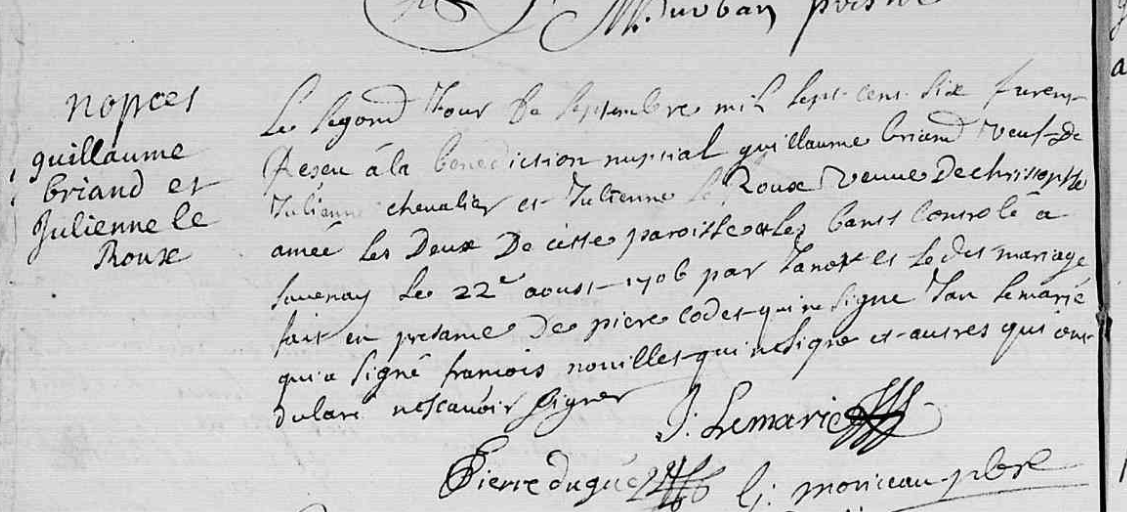 nopces
guillaume
briand et
Julienne le
Roux
Le segond Jour de septembre mil sept cens six furent
Reseu à la benediction nupsial guillaume briand veuf de
Julienne chevalier et Julienne le Roux veuve De christophle
amée les Deux De cette paroisse les bans Controlé a
savenay le 22e aoust 1706 par et le dit mariage
fait en presance De piere codet qui ne signe Jan lemarié
qui a signé francois nouilles qui ne signe et autres qui ont
dclaré ne scavoir signer
J. Lemarie
Pierre dugué G. moriceau pbre